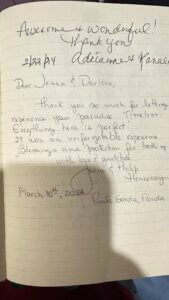 Awesome & wonderful!
Thank you!
2/22/24 Adrianne &
Dear Jenna & Darlene,
Thank you so much for letting
experience your paradise Timeless.
Everything here is perfect.
It was an unforgettable experience.
Blessings and protection for both of
with love & gratitude
& Philip
March 10th, 2024
Punta Gorda, Florida